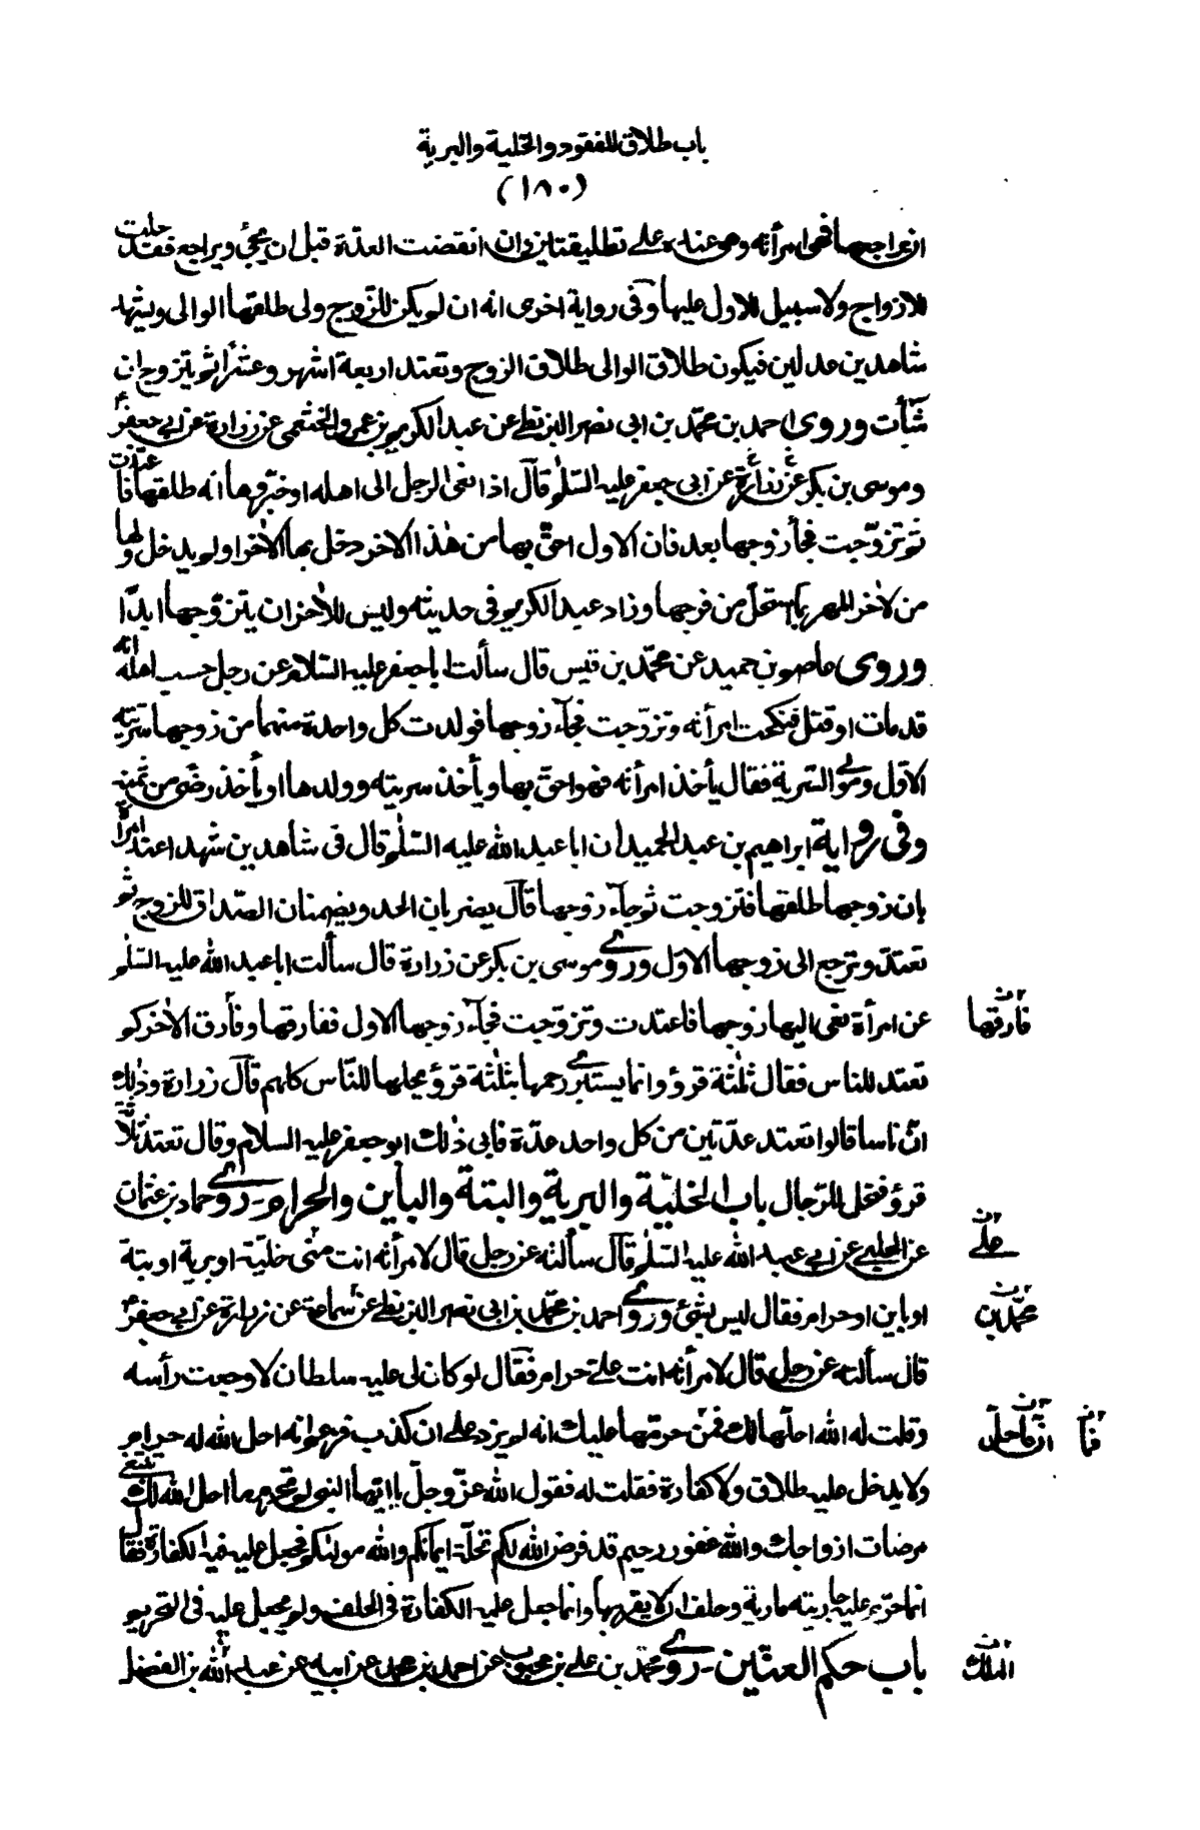 باب طلاق المفقود والخلية والبرية
(١٨٠)
ان يراجعها فهى امرأته وهى عنده على تطليقتين وان انقضت العدة قبل ان يجئ ويراجع فقد حلت
للازواج ولا سبيل للاول عليها وفى رواية اخرى انه ان لم يكن للزوج ولى طلقها الوالى ويشهد
شاهدين عدلين فيكون طلاق الوالى طلاق الزوج وتعتد اربعة اشهر وعشرا ثم تتزوج ان
شأت وروى احمد بن محمد بن ابى نصر البزنطى عن عبد الكريم بن عمرو الخثعمى عن زرارة عن ابى جعفر ع
وموسى بن بكر عن زرارة عن ابى جعفر عليه السلم قال اذا نعى الرجل الى اهله او خبروها انه طلقها فاعتدت
ثم تزوجت فجأ زوجها بعد فان الاول احق بها من هذا الاخر دخل بها الاخر او لم يدخل ولها
من الاخر المهر بما استحل من فرجها وزاد عبد الكريم فى حديثه وليس للاخر ان يتزوجها ابدا
وروى عاصم بن حميد عن محمد بن قيس قال سألت ابا جعفر عليه السلام عن رجل حسب اهله انه
قد مات او قتل فنكحت امرأته وتزوجت فجآء زوجها فولدت كل واحدة منهما من زوجها سريته
الاول ومولى السرية فقال يأخذ امرأته فهو احق بها ويأخذ سريته وولدها او يأخذ رضى من ثمنه
وفى رواية ابراهيم بن عبد الحميد ان ابا عبد الله عليه السلم قال فى شاهدين شهدا عند امرأة
بان زوجها طلقها فتزوجت ثم جآء زوجها قال يضربان الحد ويضمنان الصداق للزوج ثم
تعتد وترجع الى زوجها الاول وروى موسى بن بكر عن زرارة قال سألت ابا عبد الله عليه السلم
عن امرأة نعى اليها زوجها فاعتدت وتزوجت فجآء زوجها الاول ففارقها وفارق الاخر كم
فارقها
تعتد للناس فقال ثلثة قروء وانما يستبرء رحمها بثلثة قروء يحلها للناس كلهم قال زرارة وذلك
ان ناسا قالوا تعتد عدتين من كل واحد عدة فابى ذلك ابو جعفر عليه السلام وقال تعتد ثلاثة
قروء فتحل للرجال باب الخلية والبرية والبتة والباين والحرام - روى حماد بن عثمان
عن الحلبى عن ابى عبد الله عليه السلم قال سألته عن رجل قال لامرأته انت منى خلية او برية او بتة
على
او باين او حرام فقال ليس بشئ وروى احمد بن محمد بن ابى نصر البزنطى عن سماعة عن زرارة عن ابى جعفر ع
محمد بن
قال سألته عن رجل قال لامرأته انت على حرام فقال لو كان لى عليه سلطان لاوجعت رأسه
وقلت له الله احلها لك فمن حرمها عليك انه لم يزد على ان كذب فزعم انه احل الله له حرام
فما
ولا يدخل عليه طلاق ولا كفارة فقلت له فقول الله عز وجل يا ايها النبى لم تحرم ما احل الله لك تبتغى
مرضات ازواجك والله غفور رحيم قد فرض الله لكم تحلة ايمانكم والله موليكم فجعل عليه فيه الكفارة فقال
انما حرم عليه جاريته مارية وحلف ان لا يقربها وانما جعل عليه الكفارة فى الحلف ولم يجعل عليه فى التحريم
باب حكم العنين - روى محمد بن على بن محبوب عن احمد بن محمد عن ابيه عن عبد الله بن الفضل
الملك